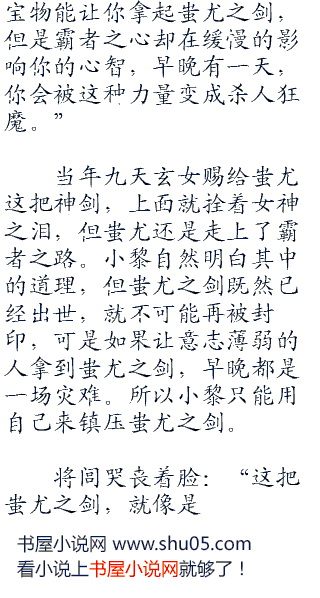 宝物能让你拿起蚩尤之剑，
但是霸者之心却在缓慢的影
响你的心智，早晚有一天，
你会被这种力量变成杀人狂
魔。”
当年九天玄女赐给蚩尤
这把神剑，上面就拴着女神
之泪，但蚩尤还是走上了霸
者之路。小黎自然明白其中
的道理，但蚩尤之剑既然已
经出世，就不可能再被封
印，可是如果让意志薄弱的
人拿到蚩尤之剑，早晚都是
一场灾难。所以小黎只能用
自己来镇压蚩尤之剑。
将闾哭丧着脸：“这把
蚩尤之剑，就像是
书屋小说网 www.shu05.com
看小说上书屋小说网就够了！